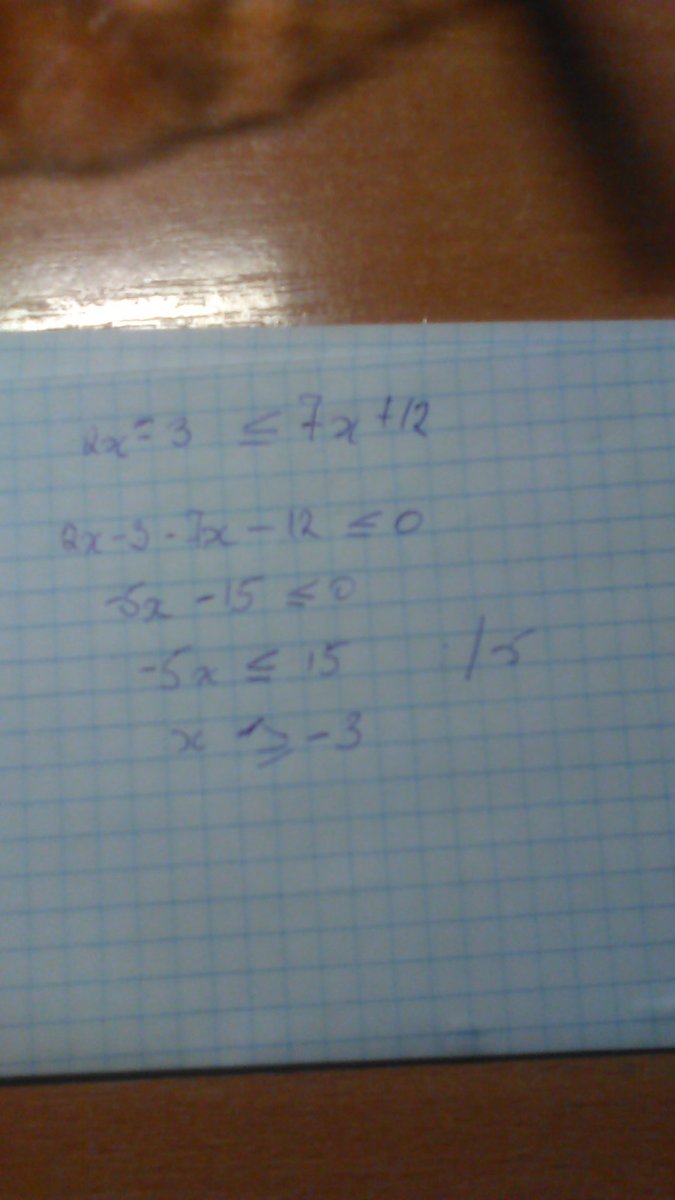 2x - 3 ≤ 7x + 12
2x - 3 - 7x - 12 ≤ 0
-5x - 15 ≤ 0
-5x ≤ 15 /5
x ≥ -3